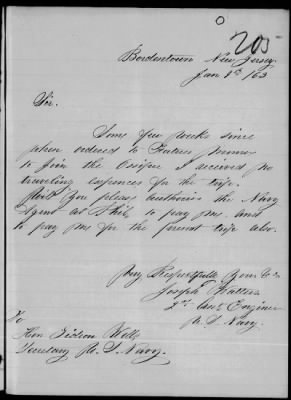 205
Bordentown New Jersey
Jan 8th / 63
Sir.
Some few weeks since
when ordered to Fortress Monroe
to join the Ossipee I received no
traveling expences for the trip.
Will you please authorise the Navy
Agent at Phil to pay me and
to pay me for the present trip also.
Very Respectfully Your
Joseph Watters
2nd Asst Engineer
U. S. Navy.
To
Hon Gideon Wells
Secretary U. S. Navy.